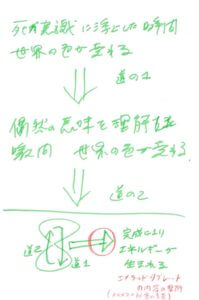 死が意識に浮上した瞬間
世界の色が変わる
道の1
偶然の意味を理解した
瞬間 世界の色が変わる
道の2
道2
道1
完成により
エネルギーが
生まれる
エメラルドタブレット
の内容の